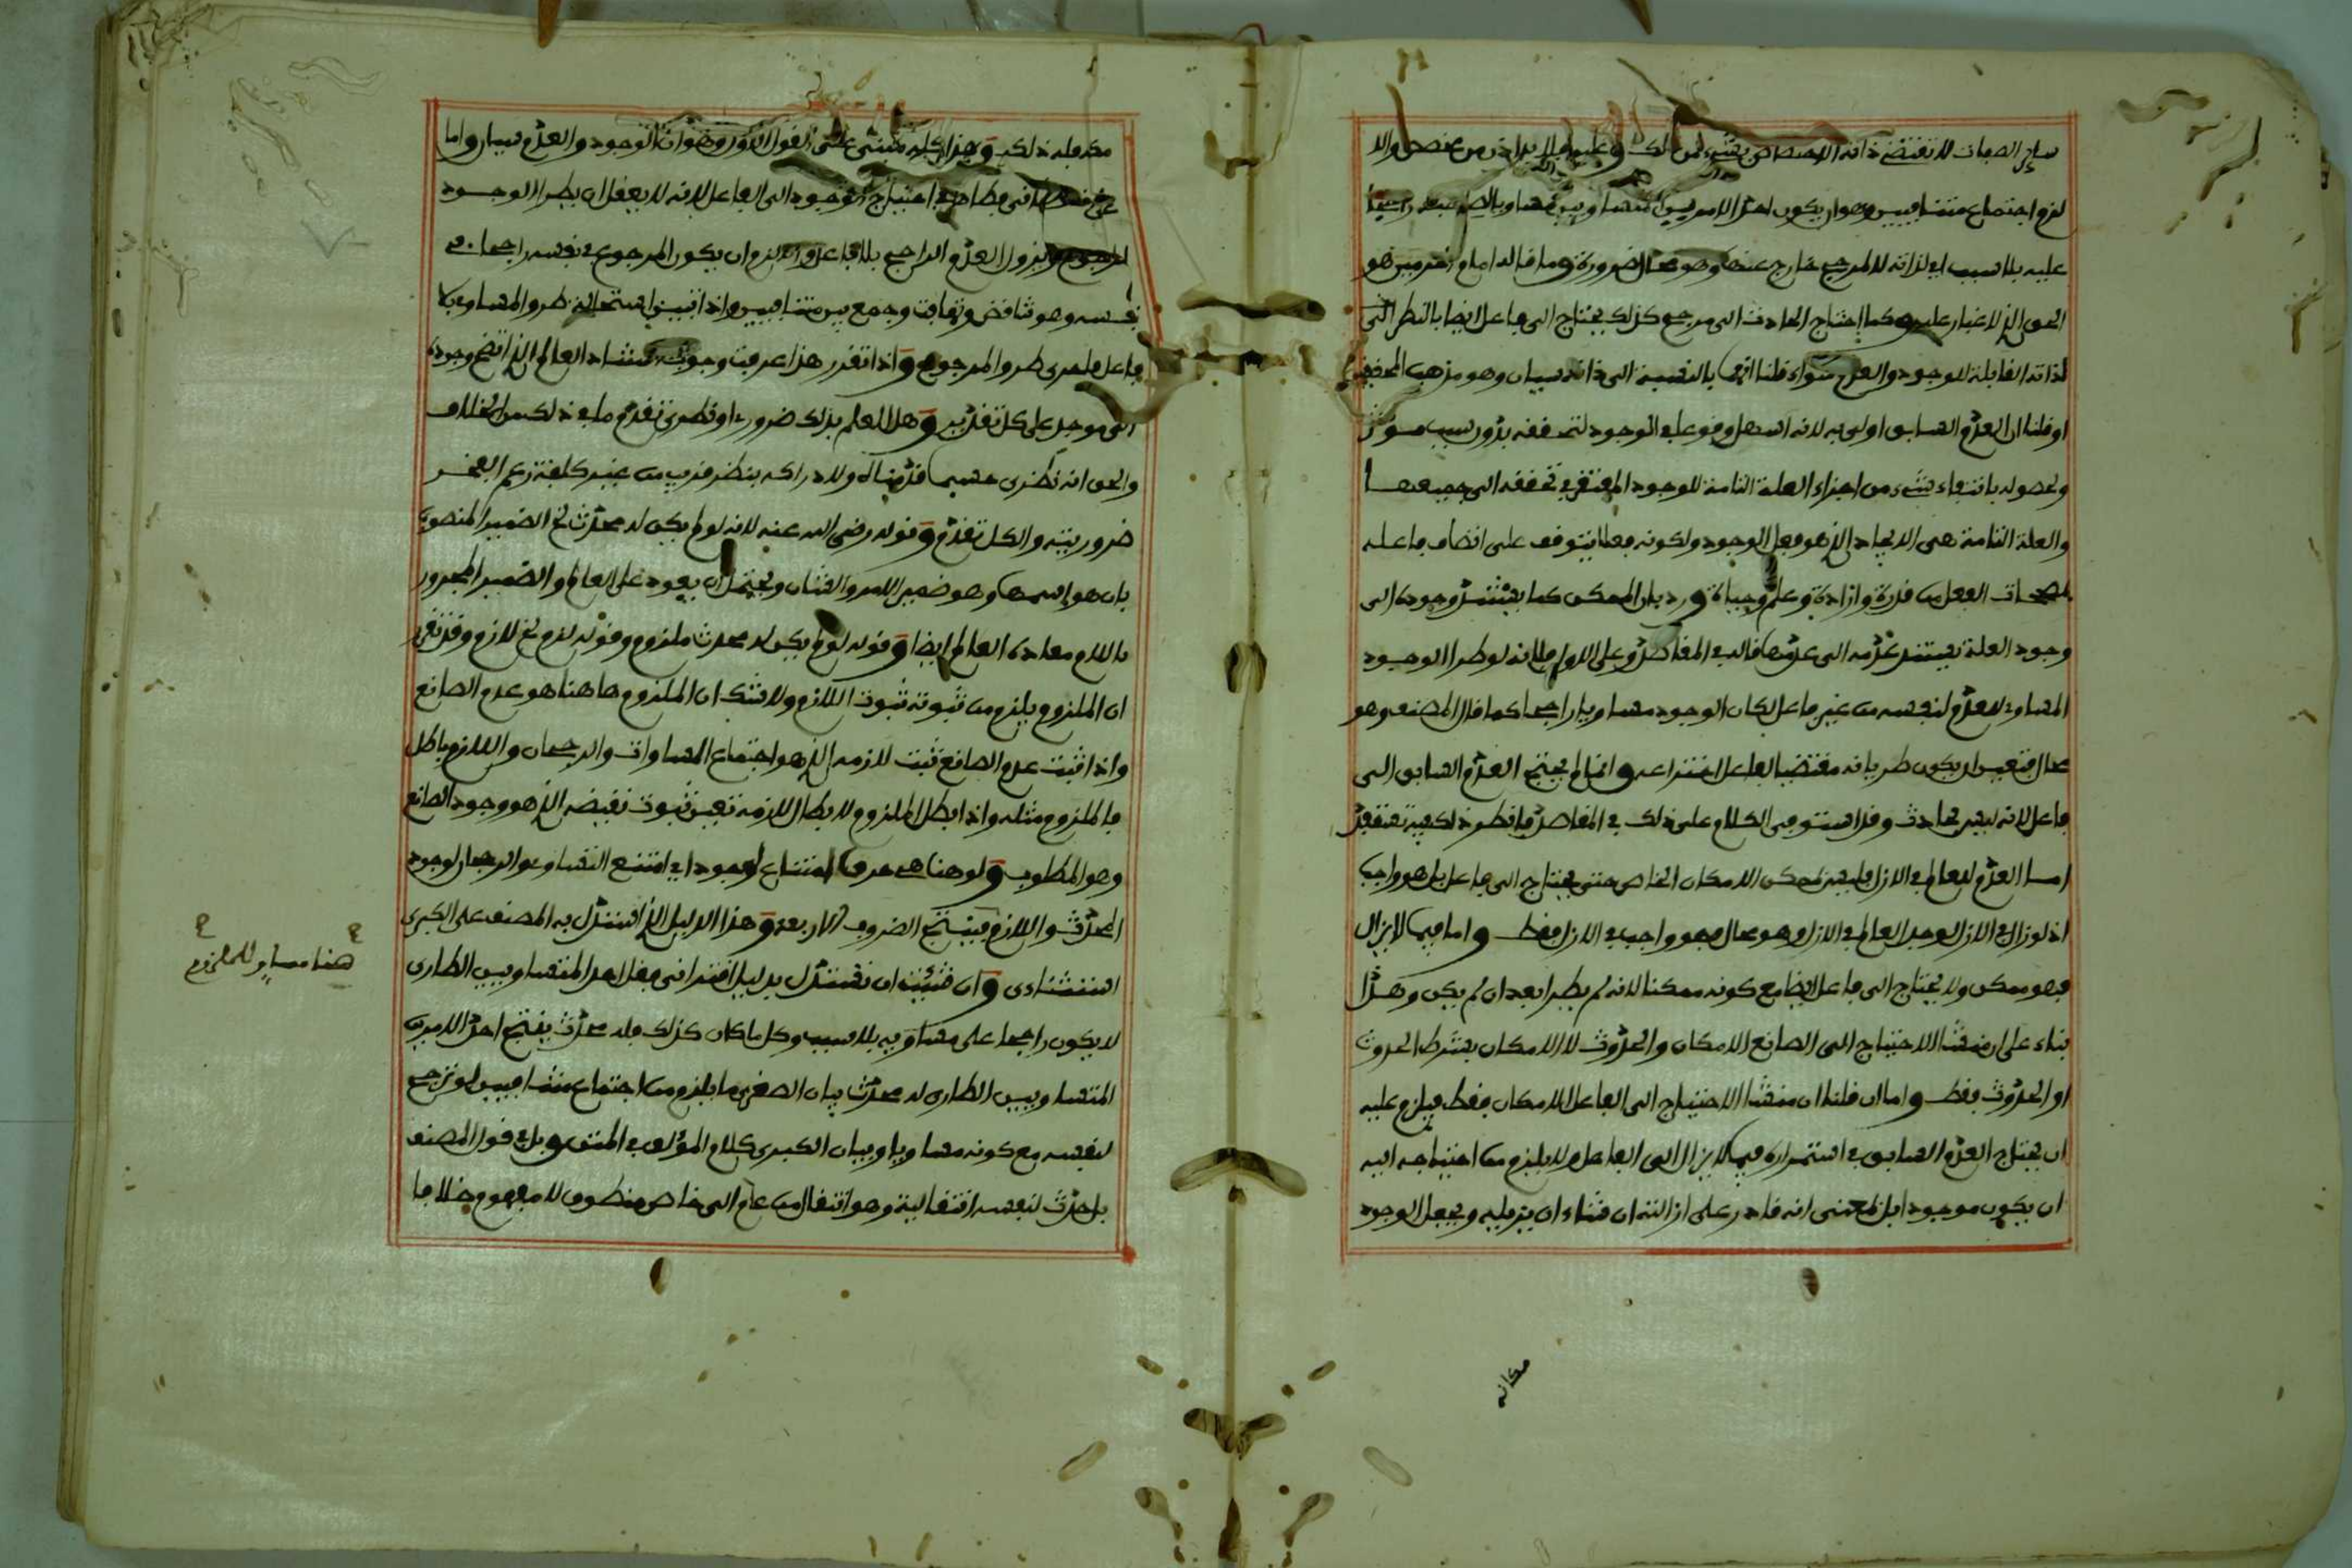 ساير الصفات لا تقتضي ذاته الاختصاص بشيء من ذلك وعليه فلا بد اذن من مخصص والا
لزم اجتماع متنافيين وهو ان يكون احد الامرين المتساويين مساويا لصاحبه راجحا
عليه بلا سبب اي لذاته لا لمرجح خارج عنه وهو محال ضرورة وما قاله امام الحرمين هو
الحق الذي لا غبار عليه وكما احتاج الحادث الى مرجح كذلك يحتاج الى فاعل ايضا بالنظر الى
لذاته القابلة للوجود والعدم سواء قلنا انهما بالنسبة الى ذاته سيان وهو مذهب المحققين
او قلنا ان العدم السابق اولى به لانه اسهل وقوعا في الوجود لتحققه بدون سبب موثر
ولحصوله بانتفاء شيء من اجزاء العلة التامة للوجود المفتقر في تحققه الى جميعها
والعلة التامة هي الايجاد الذي هو فعل الوجود ولكونه فعلا يتوقف على اتصاف فاعله
بمصححات الفعل من قدرة وارادة وعلم وحياة ورد بان الممكن كما يستند وجوده الى
وجود العلة يستند عدمه الى عدمها قاله في المقاصد وعلى الاول فلانه لو طرا الوجود
المساوي للعدم لنفسه من غير فاعل لكان الوجود مساويا راجحا كما قال المصنف وهو
محال فتعين ان يكون طريانه مقتضيا لفاعل اخترعه وانما لم يحتج العدم السابق الى
فاعل لانه ليس بحادث وقد استوفى الكلام على ذلك في المقاصد فانظر ذلك فيه تستفد
امسا العدم للعالم في الازل فليس لممكن الامكان الخاص حتى يحتاج الى فاعل بل هو واجب
اذ لو زال في الازل لوجد العالم في الازل وهو محال فهو واجب في الازل فقط واما فيما لا يزال
فهو ممكن ولا يحتاج الى فاعل ايضا مع كونه ممكنا لانه لم يطرا بعد ان لم يكن وهذا
بناء على ان منشا الاحتياج الى الصانع الامكان والحدوث لا الامكان بشرط الحدوث
او الحدوث فقط واما ان قلنا ان منشا الاحتياج الى الفاعل الامكان فقط فيلزم عليه
ان يحتاج العدم السابق في استمراره فيما لا يزال الى الفاعل ولا يلزم من احتياجه اليه
ان يكون موجودا بل بمعنى انه قادر على ازالته ان شاء ان يزيله ويجعل الوجود
مكانه
مكانه فله ذلك وهذا كله مبني على القول الاول وهو ان الوجود والعدم سيان واما
على فظاهر في احتياج الوجود الى الفاعل لانه لا يعقل ان يطرا الوجود
المرجوح ويزول العدم الراجح بلا فاعل والا لزم ان يكون المرجوح في نفسه راجحا في
نفسه وهو تناقض وتهافت وجمع بين متنافيين واذا تبين استحالة طرو المساوي بلا
فاعل فاحرى طرو المرجوح واذا تقرر هذا عرفت وجوب استناد العالم الذي اتضح وجوده
الى موجد على كل تقدير وهل العلم بذلك ضروري او نظري تقدم ما في ذلك من الخلاف
والحق انه نظري حسبما قدمناه ولادراكه بنظر قريب من غير كلفة زعم الفخر
ضروريته والكل تقدم وقوله رضي الله عنه لانه لو لم يكن له محدث الخ الضمير المنصوب
بان هو اسمها وهو ضمير الامر والشان ويحتمل ان يعود على العالم والضمير المجرور
باللام معاده العالم ايضا وقوله لو لم يكن له محدث ملزوم وقوله لزم الخ لازم وقد تقرر
ان الملزوم يلزم من ثبوته ثبوت اللازم ولا شك ان الملزوم هاهنا هو عدم الصانع
واذا ثبت عدم الصانع ثبت لازمه الذي هو اجتماع المساوات والرجحان واللازم باطل
فالملزوم مثله واذا بطل الملزوم لابطال لازمه تعين ثبوت نقيضه الذي هو وجود الصانع
وهو المطلوب ولو هنا هي حرف امتناع لوجود اي امتنع التساوي والرجحان لوجود
المحدث واللازم فينتج الضروب الاربعة وهذا الدليل الذي استدل به المصنف على الكبرى
استثناءى وان شئت ان تستدل بدليل اقتراني فقل احد المتساويين الطارى
لا يكون راجحا على مساويه بلا سبب وكل ما كان كذلك فله محدث ينتج احد الامرين
المتساويين الطارى له محدث بيان الصغرى ما يلزم من اجتماع متنافيين لو ترجح
لنفسه مع كونه مساويا وبيان الكبرى كلام المؤلف في المتن وبل في قول المصنف
بل حدث لنفسه انتقالية وهو انتقال من عام الى خاص منطوق لا مفهوم خلافا
هنا مساو للملزوم